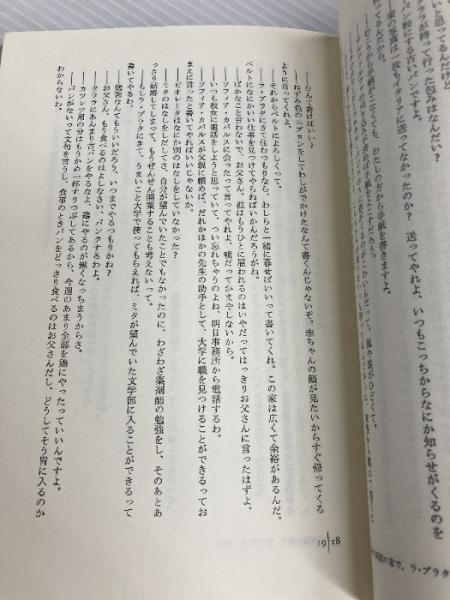 いと思ってるんだけど
ララが持って行った包みはなんだい？
パン粉にする古いパンですよ。
家の写真は一枚もイタリアに送ってなかったのか？ 送ってやれよ、いつもこっちからなにか知らせがくるのを
――なんて書けばいい？
ねずみ色のエプロンをしてわしがでかけたなんて書くんじゃないぞ。赤ちゃんの顔が見たいからすぐ帰ってくる
ように言ってくれよ。
――それからベルトによろしくって。
――ラ・プラタにきて住むつもりなら、わしらと一緒に暮せばいいって書いてくれ。この家は広くて余裕があるんだ。
ベルトになにかいい仕事を見つけてやらねばいかんだろうがね。
――ばかなこと言わないで、お父さん。彼はもうひとに雇われるのはいやだってはっきりお父さんに言ったはずよ。
――ソフィア・カバルスに会ったって言ってやれよ、嘘だってかまやしないから。
――いつも彼女に電話をしようと思っていて、つい忘れちゃうのよね、明日事務所から電話するわ。
――ソフィア・カバルスが父親に頼めば、だれかほかの先生の助手として、大学に職を見つけることができるってお
まえに言ったと書いてやればいいじゃないか。
――ビオレータはなにか別のはなしをしていなかった？
――ミタのはなしをしだしてさ、自分が望んでいたことでもなかったのに、わざわざ薬剤師の勉強をし、そのあとあ
っさり結婚してしまって、もうぜんぜん開業することも考えないって。
――もしラ・プラタにきて、うまいこと大学で使ってもらえれば、ミタが望んでいた文学部に入ることができるって
書いてやるわ。
――勉強なんてもういいだろう、いつまでやるつもりかね？
――お父さん、もう食べるのはよしなさい、パンクするわよ。
――クララにあんまり古パンをやるなよ、鶏にやるのが無くなっちまうからさ。
――カツレツ用の分はもうかめ一杯すりつぶしてあるから、今週のあまり全部を鶏にやったっていいんですよ。
――パンがないって文句を言うし、食事のときパンをどっさり食べるのはお父さんだし、どうしてそう胃に入るのか
わからないわ。
19 18